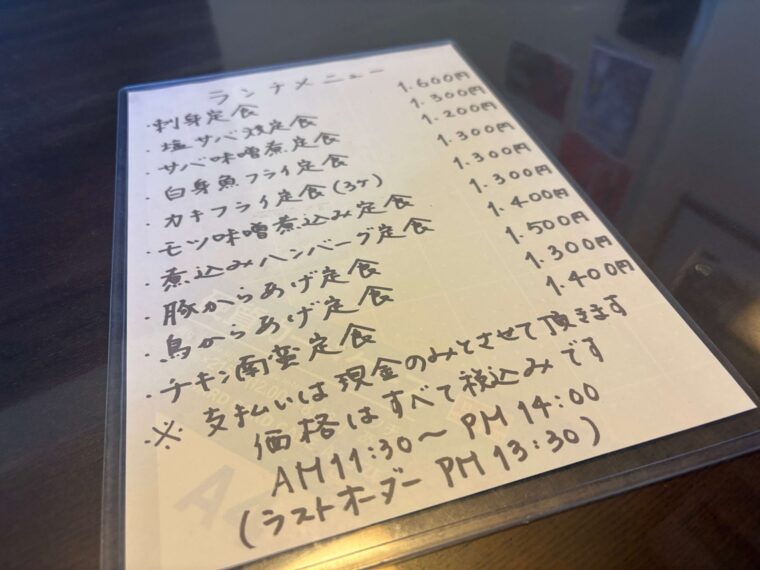 ランチメニュー
・刺身定食 1.600円
・塩サバ焼定食 1.300円
・サバ味噌煮定食 1.200円
・白身魚フライ定食 1.300円
・カキフライ定食(3ケ) 1.300円
・モツ味噌煮込み定食 1.300円
・煮込みハンバーグ定食 1.400円
・豚からあげ定食 1.500円
・鳥からあげ定食 1.300円
・チキン南蛮定食 1.400円
※ 支払いは現金のみとさせて頂きます
価格はすべて税込みです
AM11:30〜PM14:00
(ラストオーダー PM13:30)